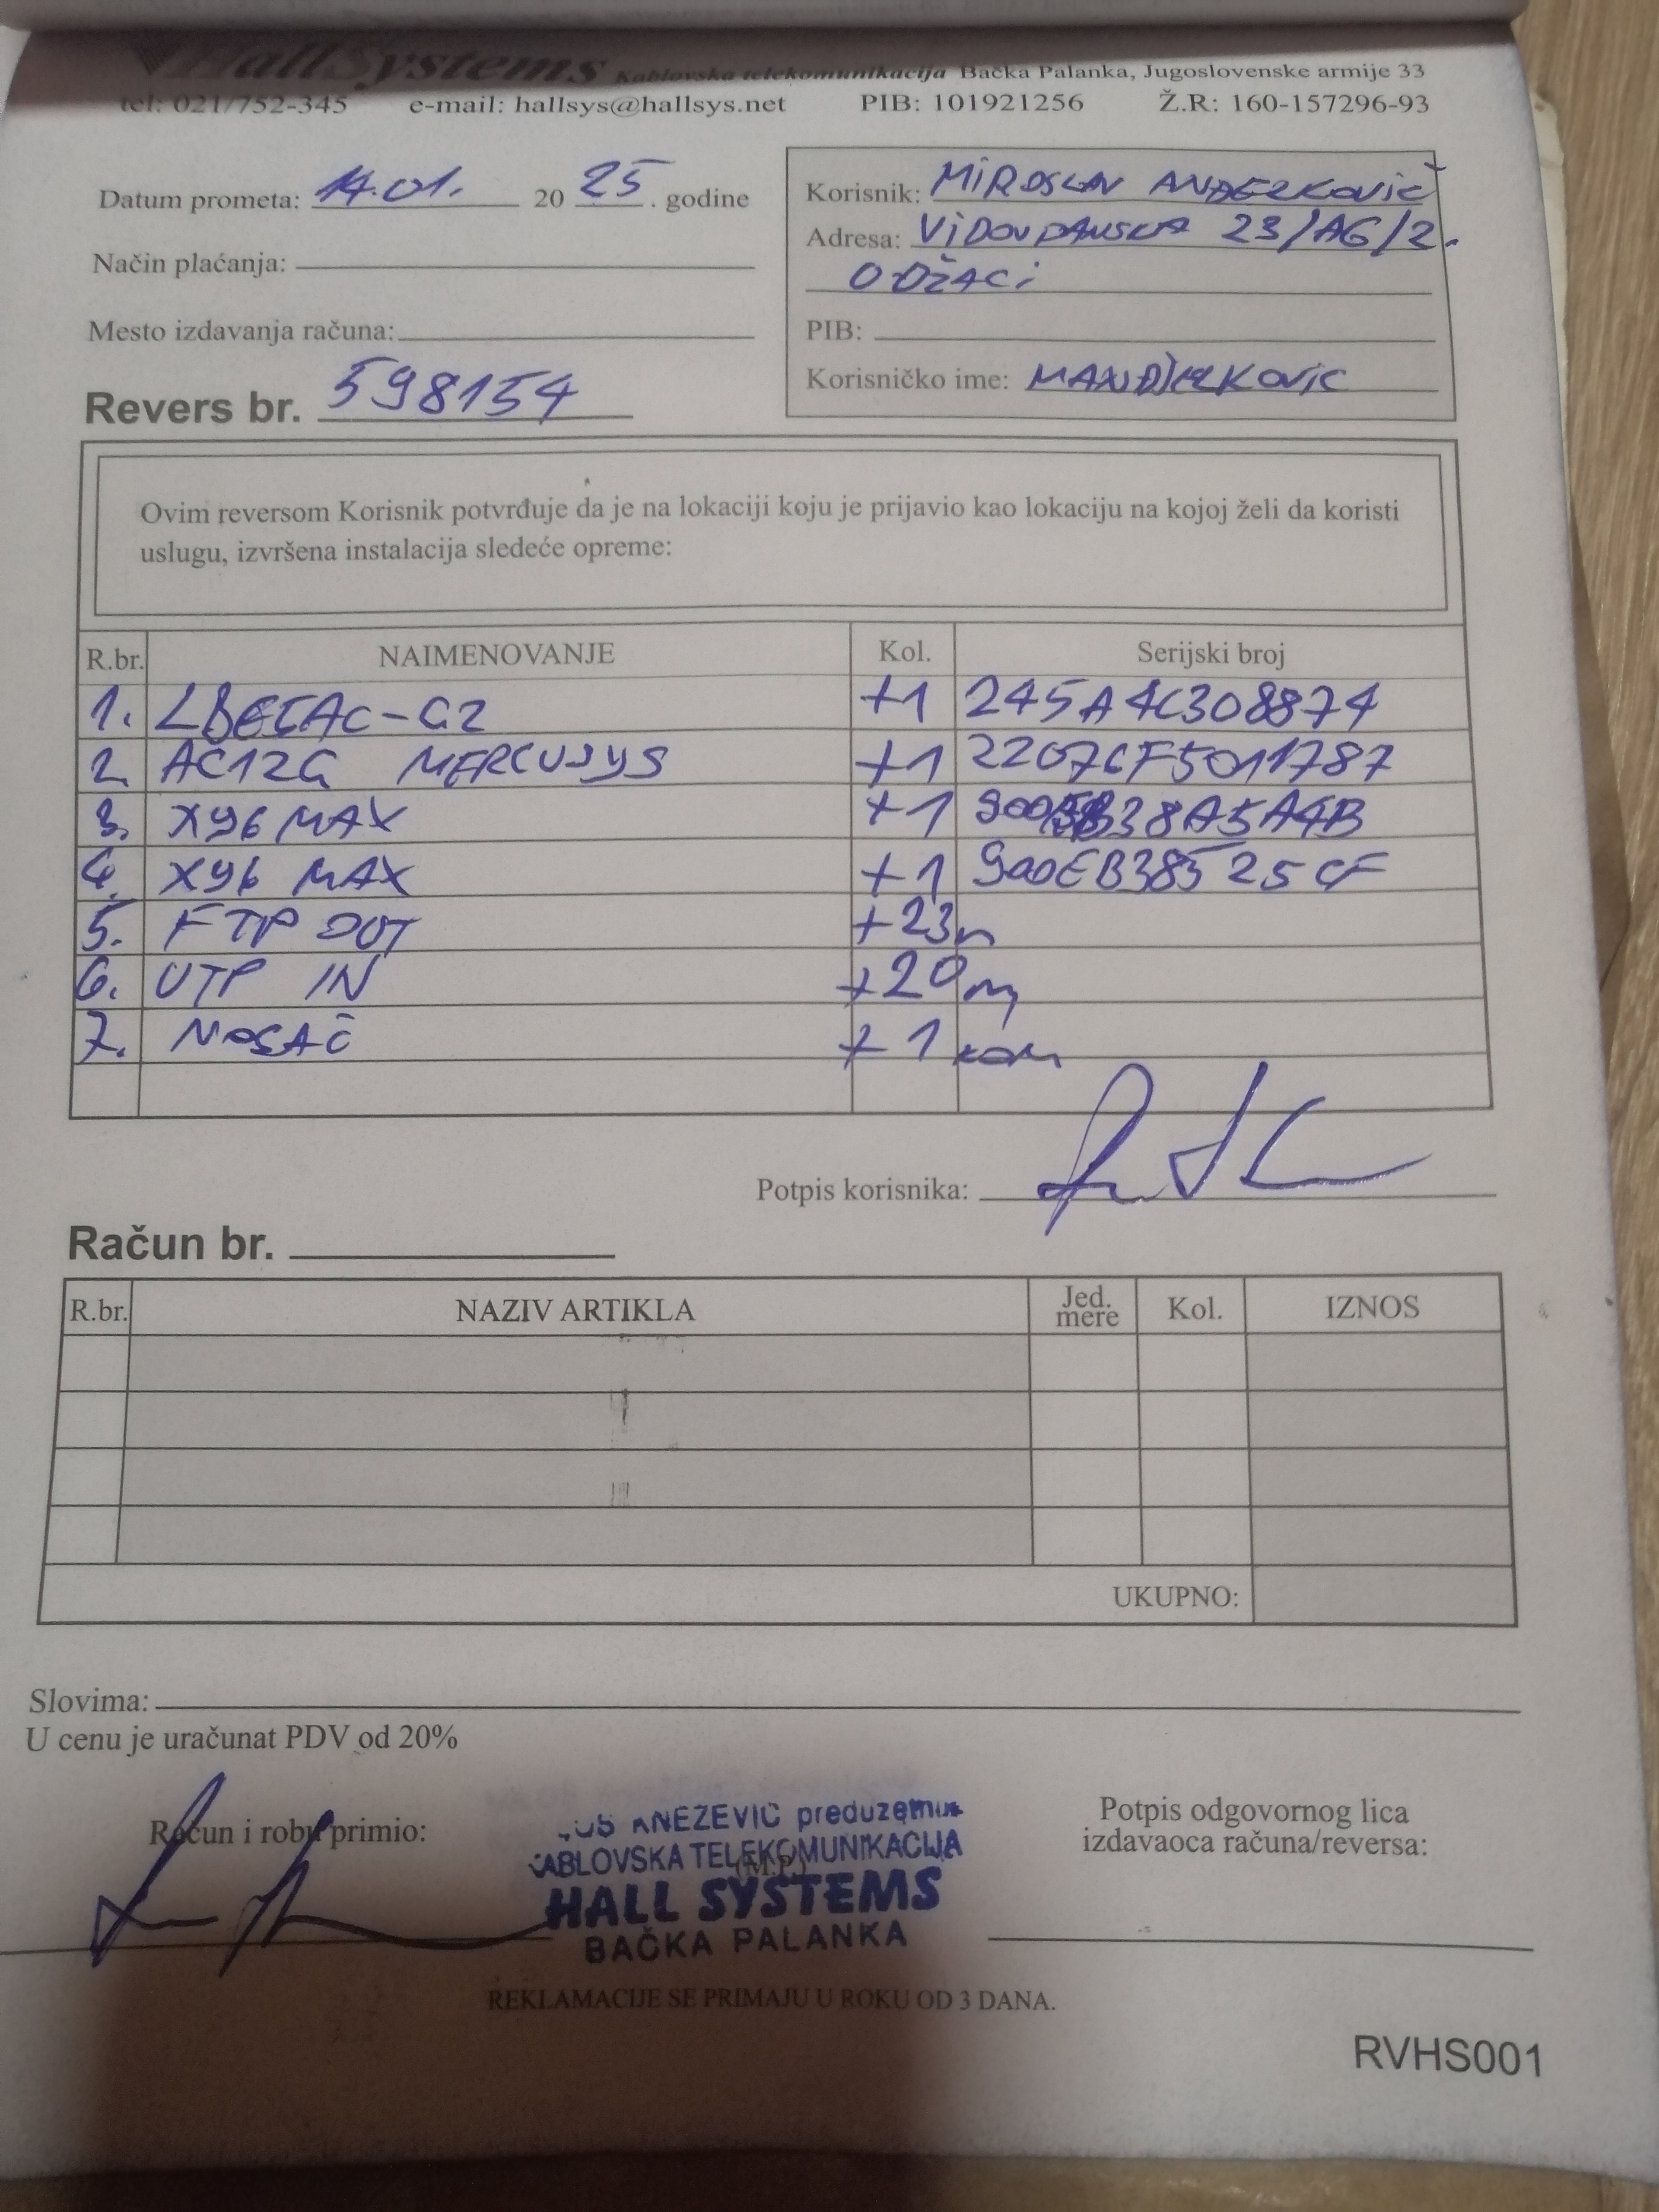 HallSystems Kablovska telekomunikacija Bačka Palanka, Jugoslovenske armije 33
tel: 021/752-345 e-mail: hallsys@hallsys.net PIB: 101921256 Ž.R: 160-157296-93
Datum prometa: 14.01. 20 25 . godine
Način plaćanja:
Mesto izdavanja računa:
Revers br. 598154
Korisnik: MIROSLAV
Adresa: VIDOVDANSKA 23/A6/2.
ODŽACI
PIB:
Korisničko ime:
Ovim reversom Korisnik potvrđuje da je na lokaciji koju je prijavio kao lokaciju na kojoj želi da koristi
uslugu, izvršena instalacija sledeće opreme:
R.br. NAIMENOVANJE Kol. Serijski broj
1. +1 245A4C308874
2. AC12G MERCUSYS +1 22076F5011787
3. X96 MAX +1
4. X96 MAX +1 900EB38525CF
5. FTP OUT +23m
6. UTP IN +20m
7. NOSAČ +1 kom
Potpis korisnika:
Račun br.
R.br. NAZIV ARTIKLA Jed. mere Kol. IZNOS
UKUPNO:
Slovima:
U cenu je uračunat PDV od 20%
Račun i robu primio:
KNEZEVIC preduzeće
KABLOVSKA TELEKOMUNIKACIJA
(M.P.)
HALL SYSTEMS
BAČKA PALANKA
Potpis odgovornog lica
izdavaoca računa/reversa:
REKLAMACIJE SE PRIMAJU U ROKU OD 3 DANA.
RVHS001